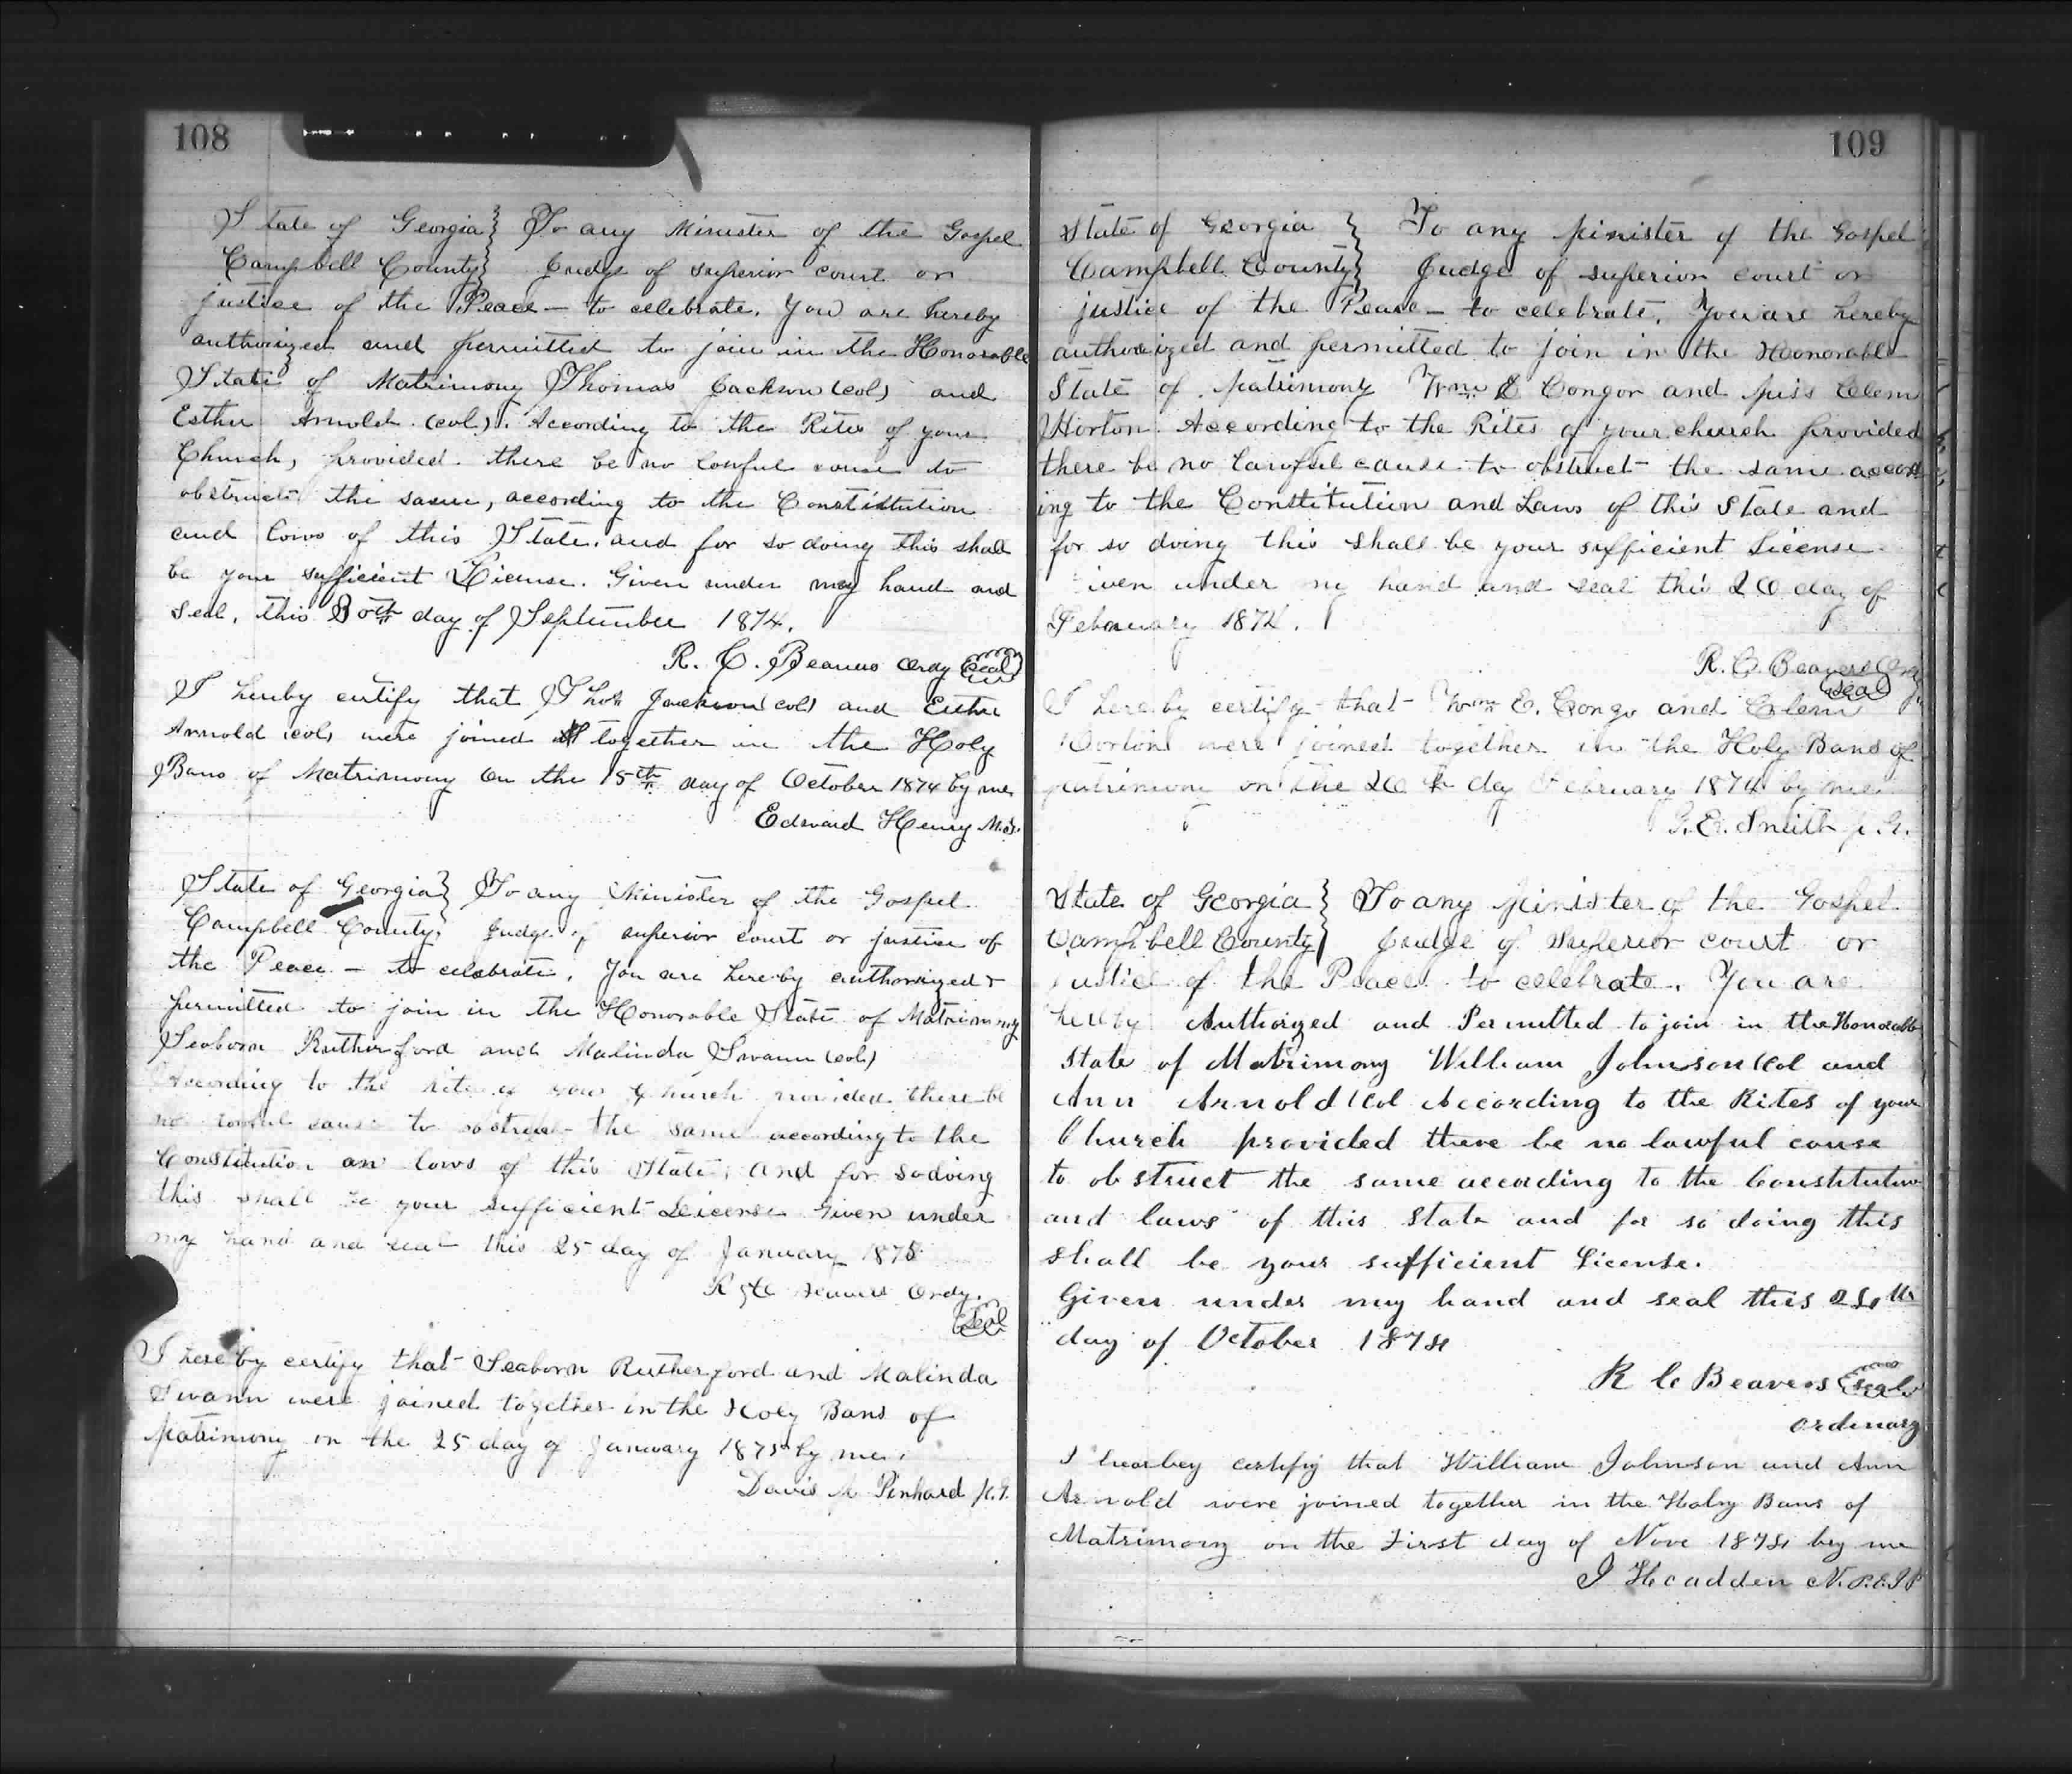 108
State of Georgia } To any Minister of the Gospel
Campbell County } Judge of superior court or
justice of the Peace — to celebrate. You are hereby
authorized and permitted to join in the Honorable
State of Matrimony Thomas Jackson (col) and
Esther Arnold (col). According to the Rites of your
Church, provided there be no lawful cause to
obstruct the same, according to the Constitution
and laws of this State, and for so doing this shall
be your sufficient License. Given under my hand and
Seal, this 30th day of September 1874.
R. C. Beavers Ordy Seal
I hereby certify that Thos Jackson (col) and Esther
Arnold (col) were joined together in the Holy
Bans of Matrimony on the 15th day of October 1874 by me
Edward Henry M.G.
State of Georgia } To any Minister of the Gospel
Campbell County } Judge of superior court or justice of
the Peace — to celebrate. You are hereby authorized &
permitted to join in the Honorable State of Matrimony
Seaborn Rutherford and Malinda Swann (col)
According to the Rites of your Church provided there be
no lawful cause to obstruct the same according to the
Constitution an laws of this State, and for so doing
this shall be your sufficient License Given under
my hand and seal this 25 day of January 1875
R C Beavers Ordy.
Seal
I hereby certify that Seaborn Rutherford and Malinda
Swann were joined together in the Holy Bans of
Matrimony on the 25 day of January 1875 by me.
Davis Penhard
109
State of Georgia } To any Minister of the Gospel
Campbell County } Judge of superior court or
justice of the Peace — to celebrate. You are hereby
authorized and permitted to join in the Honorable
State of Matrimony Wm E Congor and Miss Clem
Horton. According to the Rites of your church provided
there be no lawful cause to obstruct the same accord
ing to the Constitution and Laws of this State and
for so doing this shall be your sufficient License.
iven under my hand and seal this 20 day of
February 1874.
R. C. Beavers Ordy
Seal
I hereby certify that Wm E. Congo and Clem
Horton were joined together in the Holy Bans of
Matrimony on the 20th day February 1874 by me.
E. Smith
State of Georgia } To any Minister of the Gospel
Campbell County } Judge of Superior court or
Justice of the Peace to celebrate. You are
hereby Authorized and Permitted to join in the Honorable
State of Matrimony William Johnson (Col and
Ann Arnold (Col According to the Rites of your
Church provided there be no lawful cause
to obstruct the same according to the Constitution
and laws of this State and for so doing this
shall be your sufficient License.
Given under my hand and seal this 24th
day of October 1874
R C Beavers Seal
ordinary
I hearbey certify that William Johnson and Ann
Arnold were joined together in the Holy Bans of
Matrimony on the First day of Nove 1874 by me
J Hcadden N.P.&JP